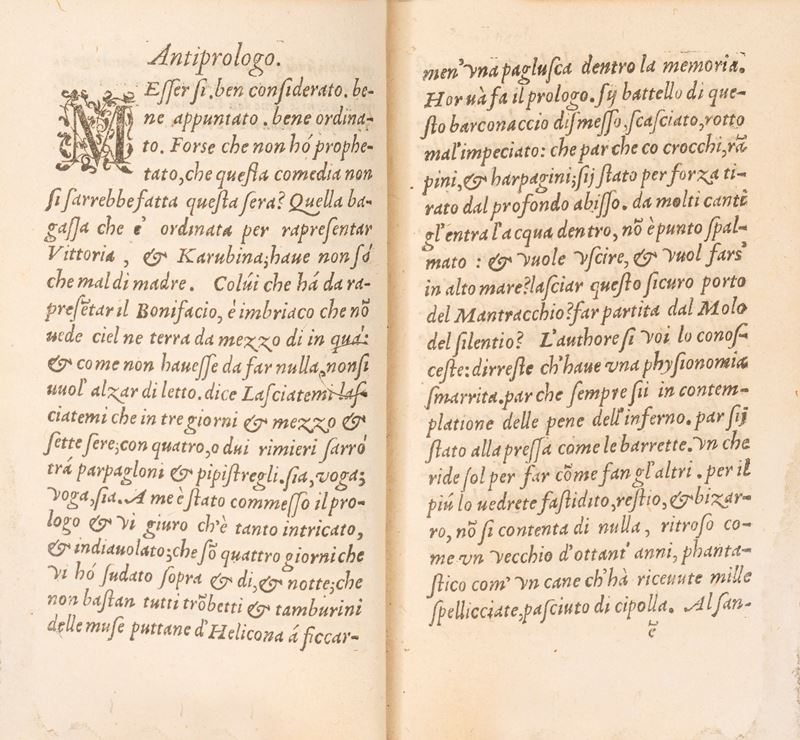 Antiprologo.
MEſſer ſi .ben conſiderato. be-
ne appuntato .bene ordina-
to. Forse che non hó prophe-
tato,che queſta comedia non
ſi ſarrebbe fatta queſta ſera? Quella ba-
gaſſa che é ordinata per rapreſentar
Vittoria , & Karubina;haue non ſó
che mal di madre. Colúi che há da ra-
preſẽtar il Bonifacio, è imbriaco che nõ
uede ciel ne terra da mezzo di in quá:
& come non haueſſe da far nulla,nonſi
uuol' alzar di letto. dice Laſciatemi laſ-
ciatemi che in tre giorni & mezzo &
ſette ſere;con quatro,o dui rimieri ſarró
trá parpagloni & pipiſtregli.ſia,voga;
voga,ſia. A me è ſtato commeſſo il pro-
logo & vi giuro ch'è tanto intricato,
& indiauolato;che ſõ quattro giorni che
vi hó ſudato ſopra & di,& notte;che
non baſtan tutti trõbetti & tamburini
delle muſe puttane d'Helicona á ficcar-
men' vna pagluſca dentro la memoria.
Hor uà fa il prologo. ſij battello di que-
ſto barconaccio diſmeſſo,ſcaſciato,rotto
mal'impeciato: che par che co crocchi,rã
pini,& harpagini;ſij ſtato per forza ti-
rato dal profondo abiſſo. da molti canti
gl'entra l'acqua dentro, nõ è punto ſpal-
mato : & vuole vſcire, & vuol farſ'
in alto mare?laſciar queſto ſicuro porto
del Mantracchio?far partita dal Molo
del ſilentio? L'authore ſi voi lo conoſ-
ceſte: dirreſte ch'haue vna phyſionomia
ſmarrita.par che ſempre ſii in contem-
platione delle pene dell'inferno. par ſij
ſtato alla preſſa come le barrette. vn che
ride ſol per far cõme fan gl'altri . per il
piú lo uedrete faſtidito,reſtio,& bizar-
ro, nõ ſi contenta di nulla, ritroſo co-
me vn vecchio d'ottant' anni, phanta-
ſtico com' vn cane ch'hà riceuute mille
ſpellicciate,paſciuto di cipolla. Al ſan-
ẽ